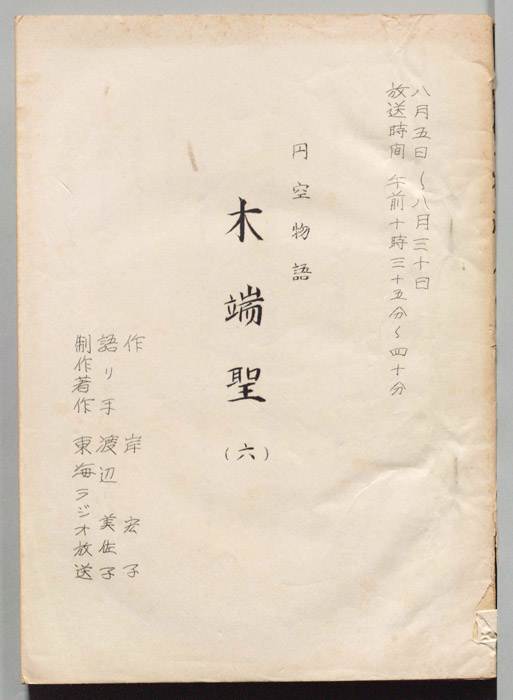 八月五日〜八月三十日
放送時間 午前十時三十五分〜四十分
円空物語
木端聖
(六)
作 岸 宏子
語り手 渡辺 美佐子
制作著作 東海ラジオ放送